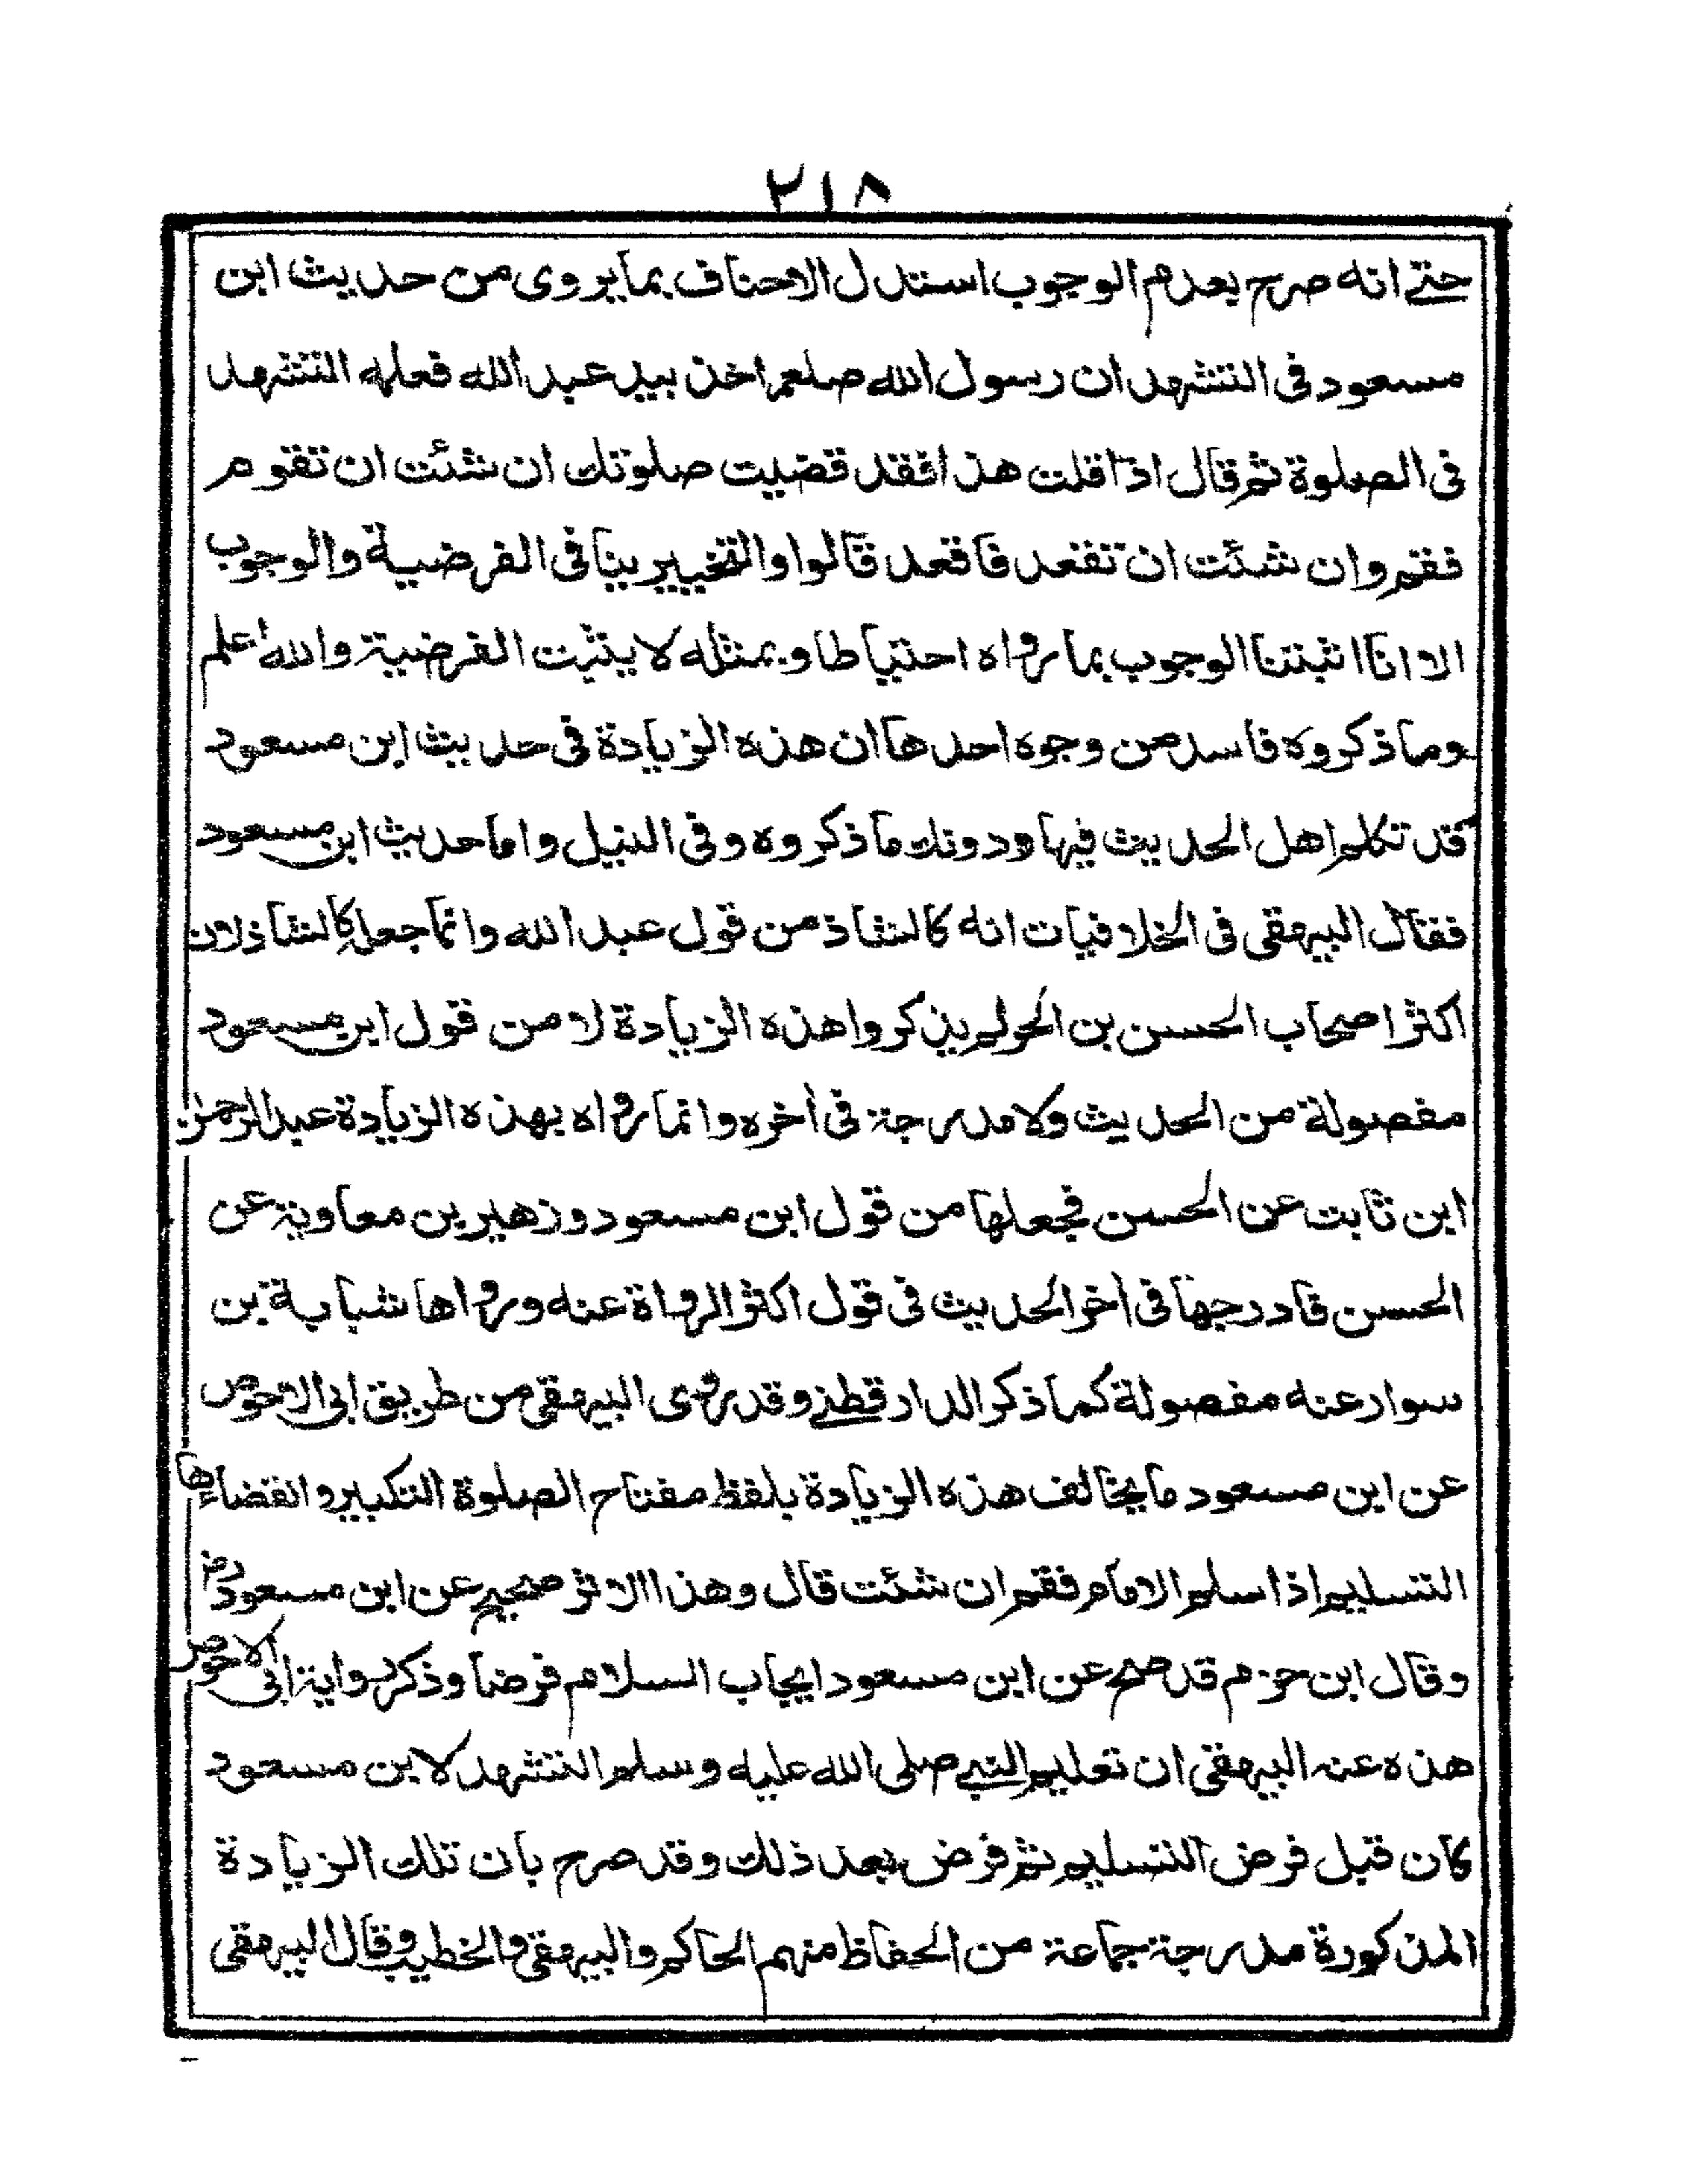 ٢١٨
حتے انه صرح بعدم الوجوب استدل الاحناف بما يروى من حديث ابن
مسعود فى التشهد ان رسول الله صلعم اخذ بيد عبد الله فعلمه التشهد
فى الصلوة ثم قال اذا قلت هذا فقد قضيت صلوتك ان شئت ان تقوم
فقم وان شئت ان تقعد فاقعد قالوا والتخيير ينافى الفرضية والوجوب
الا انا اثبتنا الوجوب بما رواه احتياطا وبمثله لا يثبت الفرضية والله اعلم
وما ذكروه فاسد من وجوه احدها ان هذه الزيادة فى حديث ابن مسعود
قد تكلم اهل الحديث فيها ودونك ما ذكروه وفى النيل واما حديث ابن مسعود
فقال البيهقى فى الخلافيات انه كالشاذ من قول عبد الله وانما جعل كالشاذ لان
اكثر اصحاب الحسن بن الحر لم يذكروا هذه الزيادة لا من قول ابن مسعود
مفصولة من الحديث ولا مدرجة فى أخره وانما رواه بهذه الزيادة عبد الرحمن
ابن ثابت عن الحسن فجعلها من قول ابن مسعود وزهير بن معاوية عن
الحسن فادرجها فى أخر الحديث فى قول اكثر الرواة عنه ورواها شبابة بن
سوار عنه مفصولة كما ذكر الدارقطنے وقد روى البيهقى من طريق ابى الاحوص
عن ابن مسعود ما يخالف هذه الزيادة بلفظ مفتاح الصلوة التكبير وانقضاءها
التسليم اذا سلم الامام فقم ان شئت قال وهذا الاثر صحيح عن ابن مسعود رض
وقال ابن حزم قد صح عن ابن مسعود ايجاب السلام فرضا وذكر رواية ابى الاحوص
هذه عنه البيهقى ان تعليم النبے صلى الله عليه وسلم التشهد لابن مسعود
كان قبل فرض التسليم ثم فرض بعد ذلك وقد صرح بان تلك الزيادة
المذكورة مدرجة جماعة من الحفاظ منهم الحاكم والبيهقى والخطيب وقال البيهقى